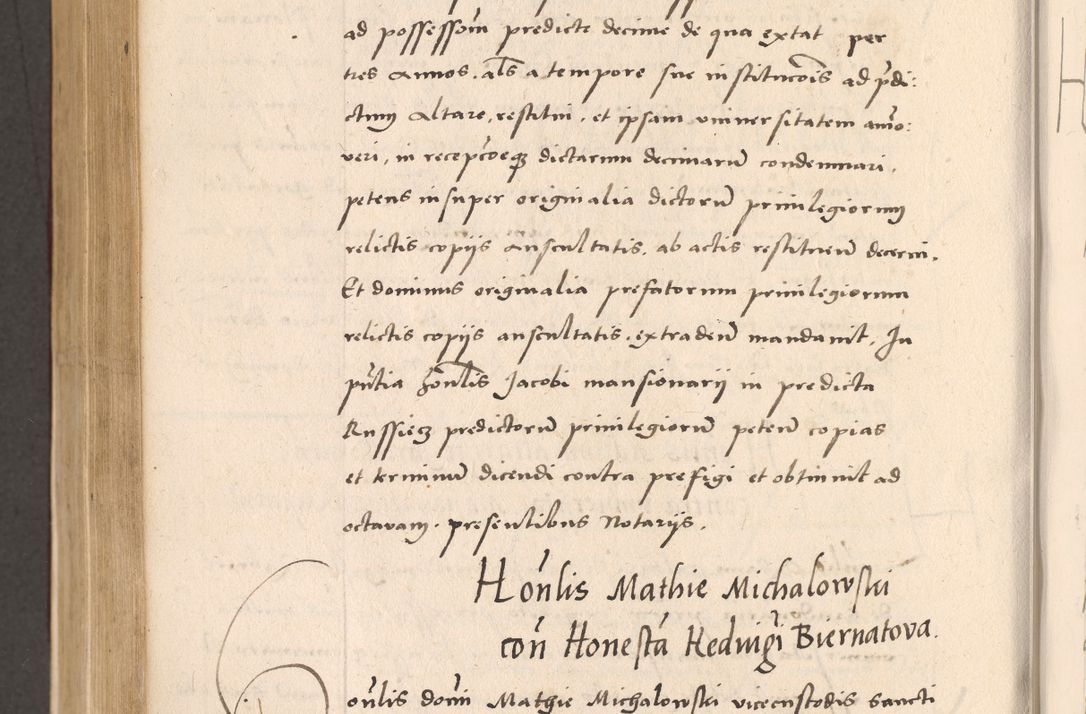 ad possessom̃ predicte decime de qua extat per
tres annos. als̃ a tempore sue institucõis ad p̃di:
ctum altare, restitui, et ipsam vniuersitatem amo:
ueri, in recepcõeqʒ dictarum decimarũ condemnari,
petens insuper originalia dictorũ priuilegiorum
relictis copijs auscultatis, ab actis restituerũ decerni,
Et dominus originalia prefatorum priuilegiorum
relictis copijs auscultatis, extraderũ mandauit, In
pñtia hoñlis Jacobi mansionarij in predicta
Russiecz predictorũ priuilegiorũ peterũ copias
et terminũ dicendi contra prefigi et obtinuit ad
octauam. presentibus Notarijs.
Hoñlis Mathie Michalowski
coñ Honestã Heduigi Biernatova.
oñlis domĩ Mathie Michalowski vicecustodis sancti